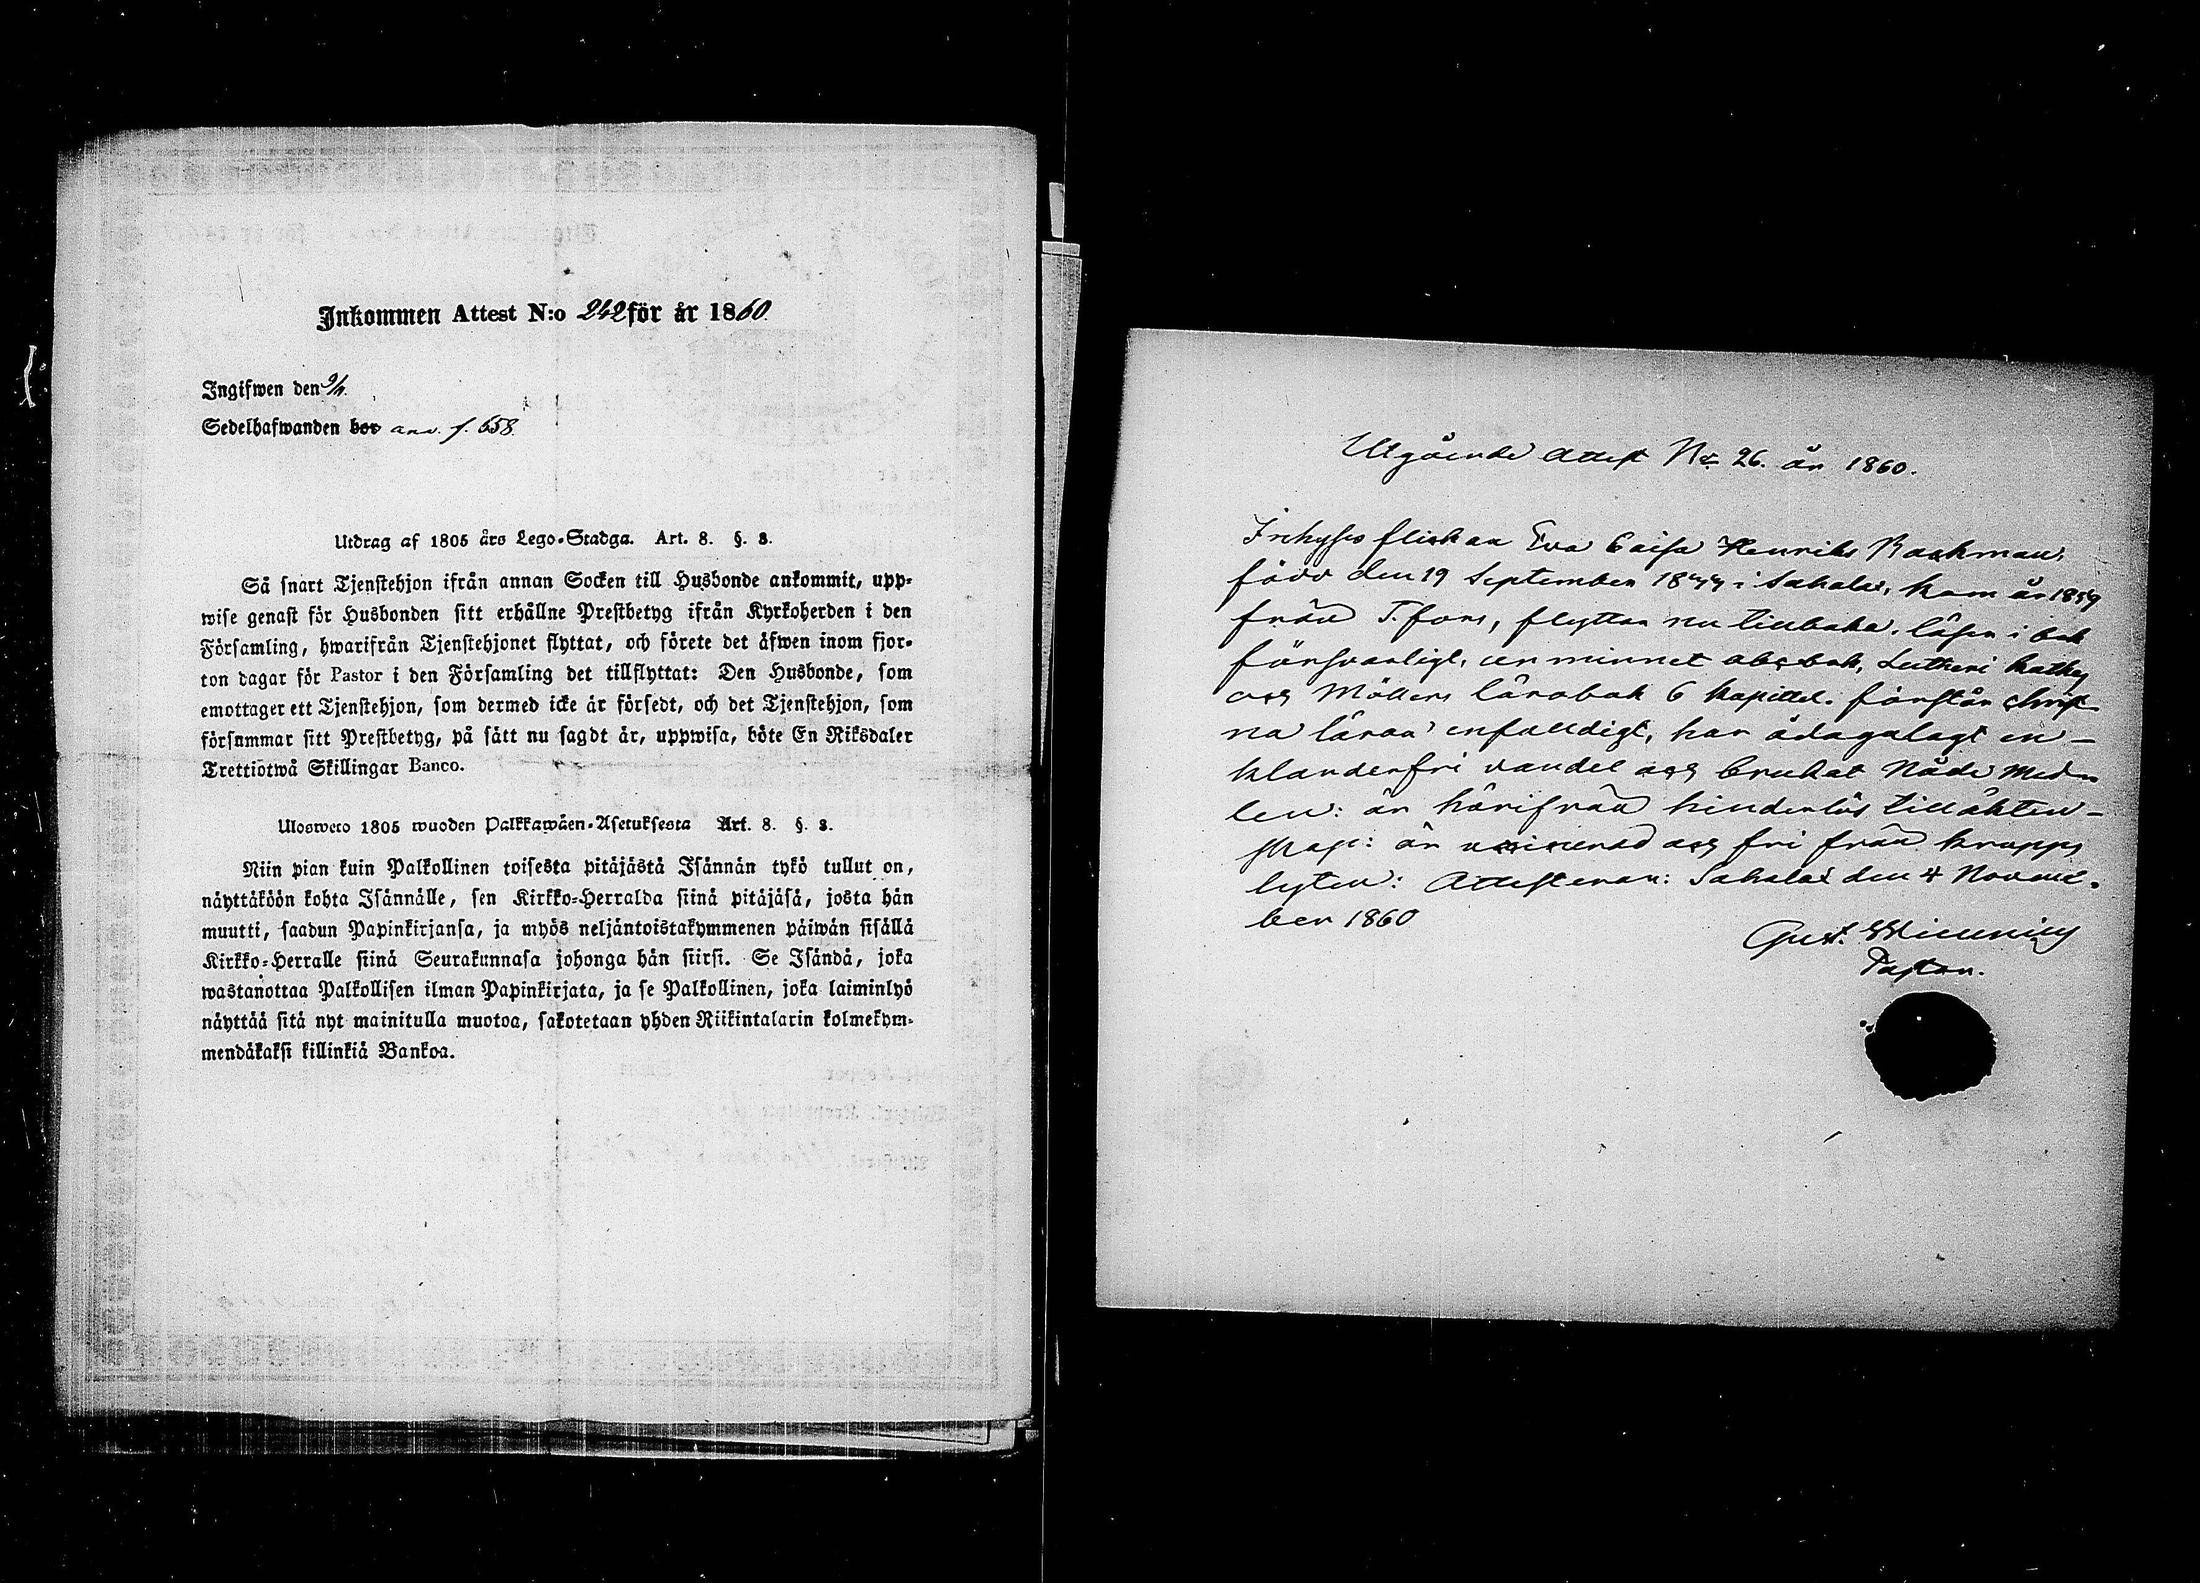 Inkommen Attest N:o 242 för år 1860.
Ingifwen den 9/11.
Sedelhafwanden bor ann. f. 658.
Utdrag af 1805 års Lego-Stadga. Art. 8. §. 3.
Så snart Tjenstehjon ifrån annan Socken till Husbonde ankommit, upp-
wise genast för Husbonden sitt erhållne Prestbetyg ifrån Kyrkoherden i den
Församling, hwarifrån Tjenstehjonet flyttat, och förete det äfwen inom fjor-
ton dagar för Pastor i den Församling det tillflyttat: Den Husbonde, som
emottager ett Tjenstehjon, som dermed icke är försedt, och det Tjenstehjon, som
försummar sitt Prestbetyg, på sätt nu sagdt är, uppwisa, böte En Riksdaler
Trettiotwå Skillingar Banco.
Ulosweto 1805 wuoden Palkkawäen-Asetuksesta Art. 8. §. 3.
Niin pian kuin Palkollinen toisesta pitäjästä Isännän tykö tullut on,
näyttäköön kohta Isännälle, sen Kirkko-Herralda siinä pitäjäsä, josta hän
muutti, saadun Papinkirjansa, ja myös neljäntoistakymmenen päiwän sisällä
Kirkko-Herralle siinä Seurakunnasa johonga hän siirsi. Se Isändä, joka
wastanottaa Palkollisen ilman Papinkirjata, ja se Palkollinen, joka laiminlyö
näyttää sitä nyt mainitulla muotoa, sakotetaan yhden Riikintalarin kolmekym-
mendäkaksi killinkiä Bankoa.
Utgående attest No 26. år 1860.
Inhyses flickan Eva Caisa Henriks Backman,
född den 19 September 1844 i Sahalax, kom år 1859
från T.fors, flyttar nu tillbaka. läser i bok
försvarligt, ur minnet abcbok, Lutheri kathes
och Möllers lärobok 6 kapittel. förstår christ-
na läran enfalldigt, har ådagalagt en -
klanderfri vandel och brukat Nåde Med
len: är härifrån hinderlös till äkten -
skap: är vaccinerad och fri från kropps
lyten: Attesterar: Sahalax den 4 Novem-
ber 1860
Gust.
Pastor.